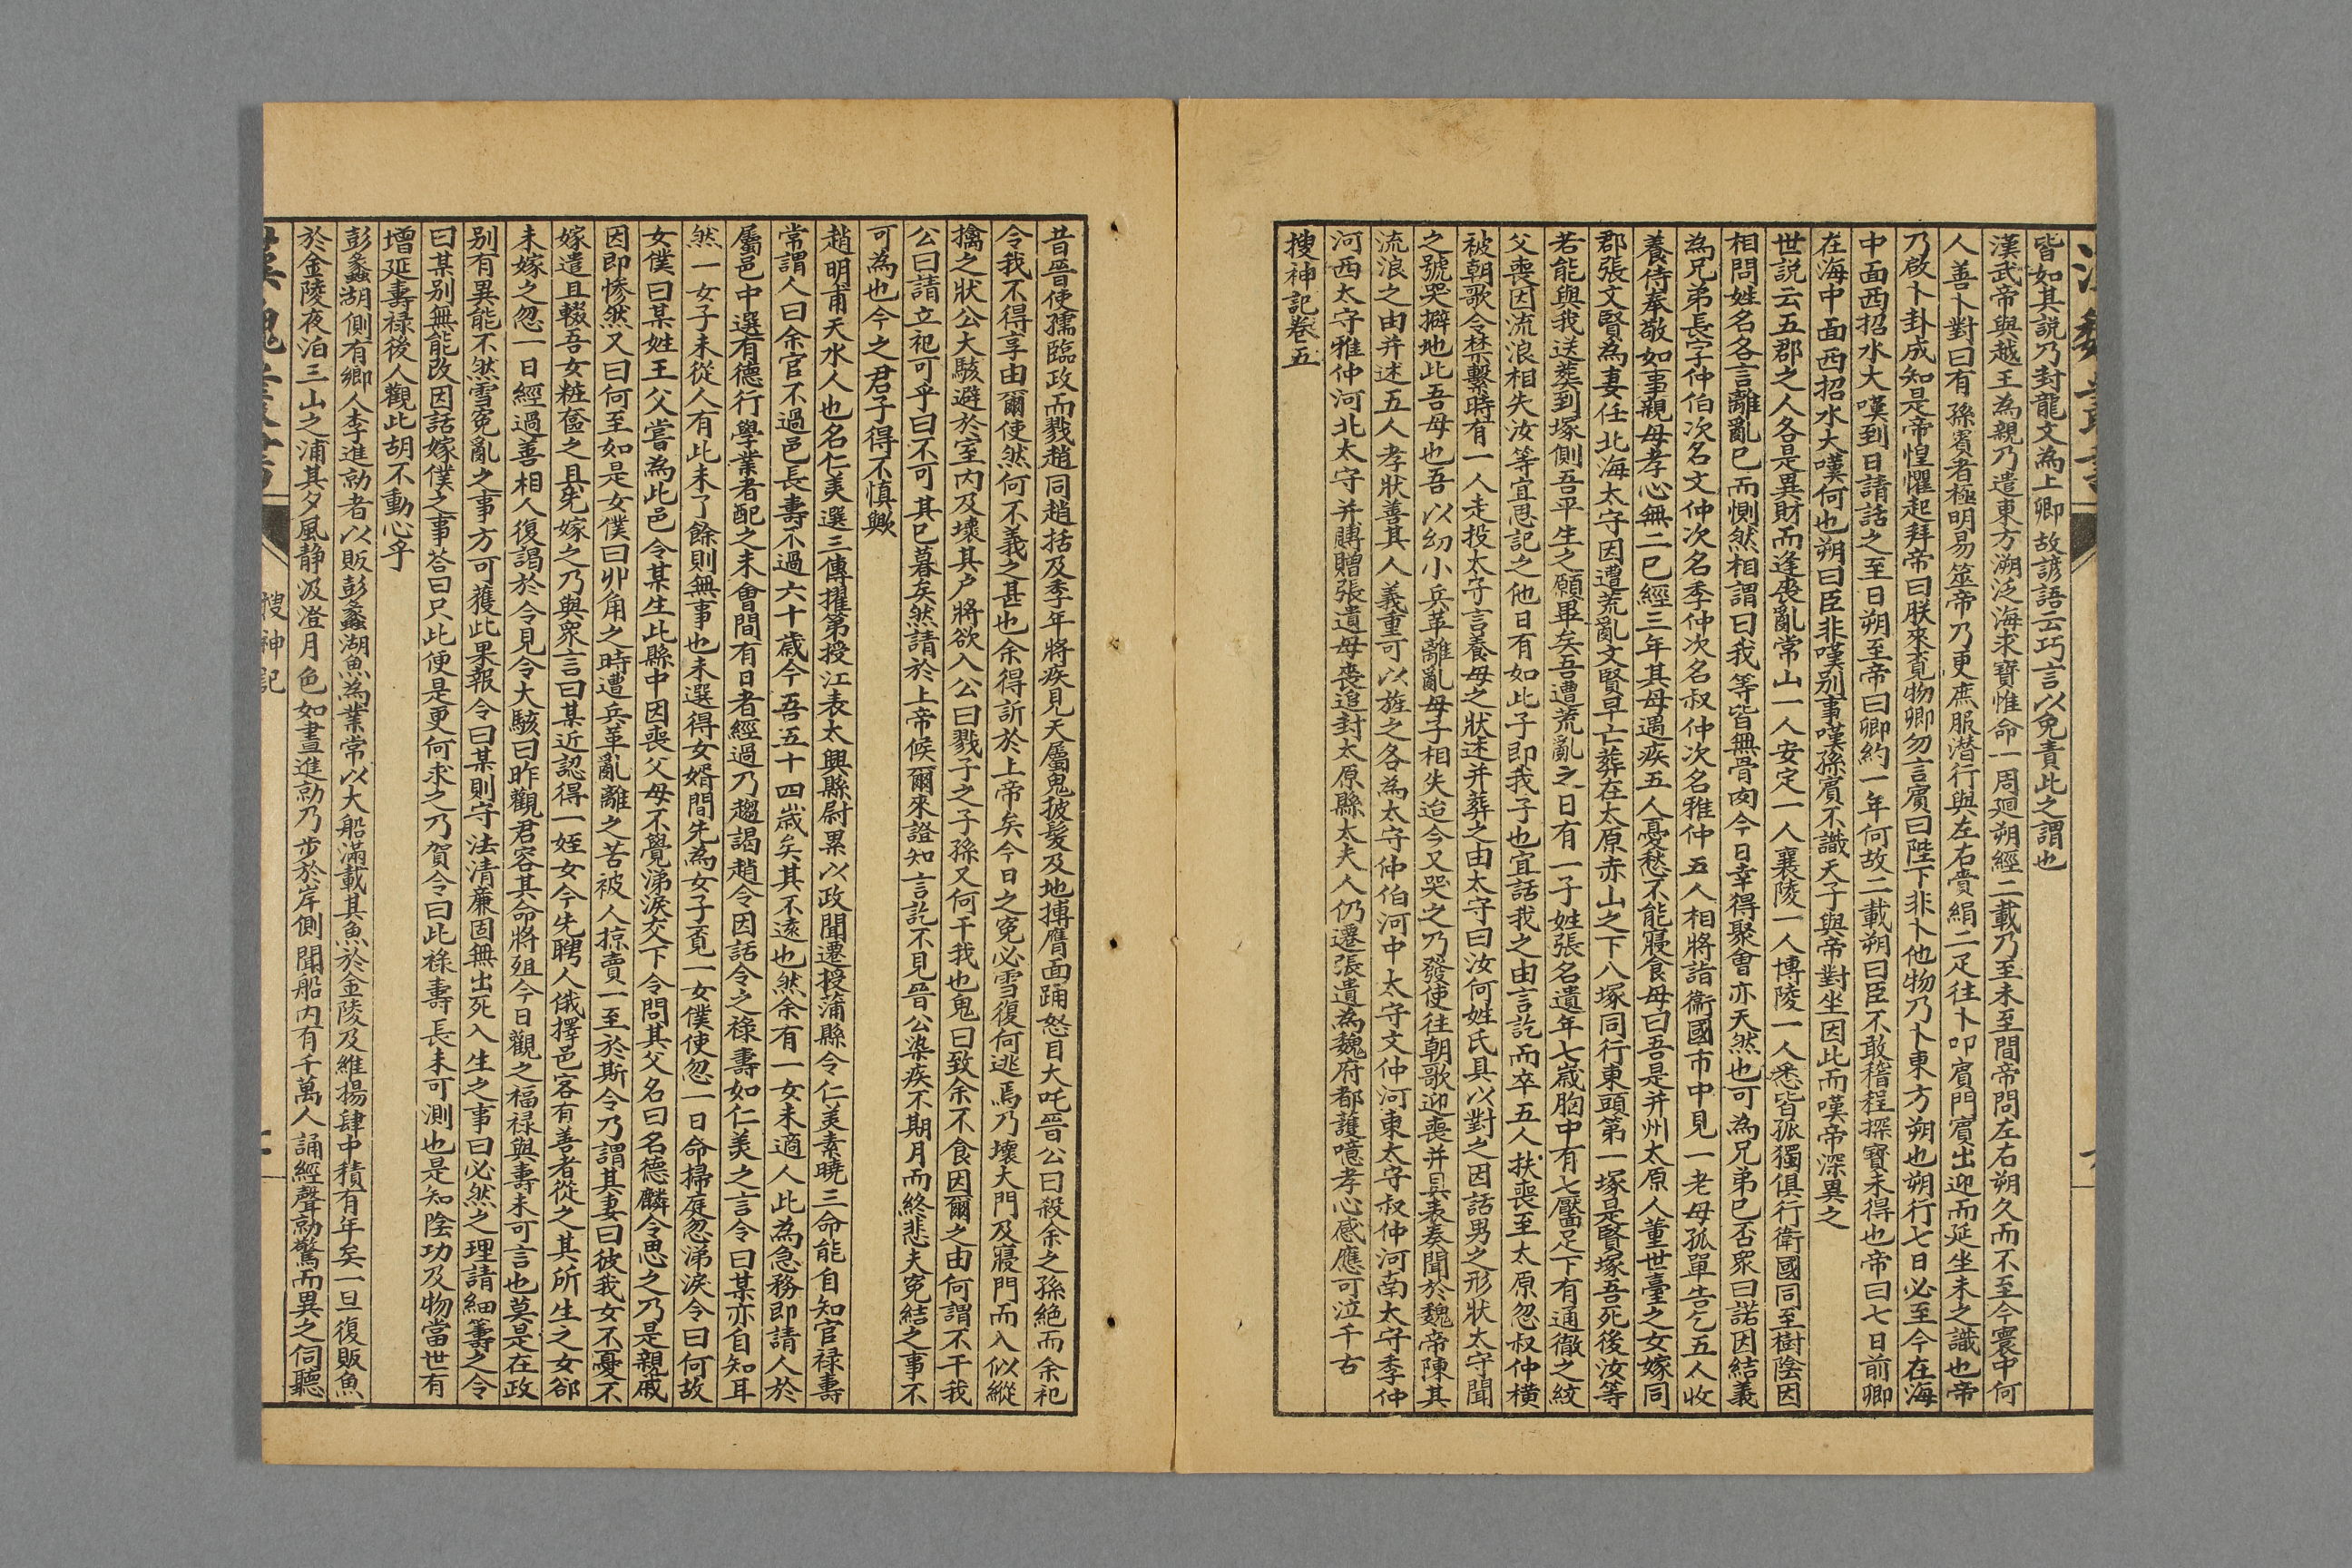 皆如其説乃封龍文為上卿故諺語云巧言以免責此之謂也
漢武帝與越王為親乃遣東方朔泛海求寶惟命一周廻朔經二載乃至未至間帝問左右朔久而不至今寰中何
人善卜對曰有孫賓者極明易筮帝乃更庶服潛行與左右賫絹二疋往卜叩賓門賓出迎而延坐未之識也帝
乃啟卜卦成知是帝惶懼起拜帝曰朕來覔物卿勿言賓曰陛下非卜他物乃卜東方朔也朔行七日必至今在海
中面西招水大嘆到日請話之至日朔至帝曰卿約一年何故二載朔曰臣不敢稽程探寶未得也帝曰七日前卿
在海中面西招水大嘆何也朔曰臣非嘆别事嘆孫賓不識天子與帝對坐因此而嘆帝深異之
世説云五郡之人各是異財而逢喪亂常山一人安定一人襄陵一人博陵一人悉皆孤獨俱行衛國同至樹陰因
相問姓名各言離亂已而惻然相謂曰我等皆無骨肉今日幸得聚會亦天然也可為兄弟已否眾曰諾因結義
為兄弟長字仲伯次名文仲次名季仲次名叔仲次名雅仲五人相將詣衛國市中見一老母孤單告乞五人收
養侍奉敬如事親母孝心無二已經三年其母遇疾五人憂愁不能寢食母曰吾是并州太原人董世臺之女嫁同
郡張文賢為妻任北海太守因遭荒亂文賢早亡葬在太原赤山之下八塚同行東頭第一塚是賢塚吾死後汝等
若能與我送葬到塚側吾平生之願畢矣吾遭荒亂之日有一子姓張名遺年七歲胸中有七靨足下有通徹之紋
父喪因流浪相失汝等宜思記之他日有如此子即我子也宜話我之由言訖而卒五人扶喪至太原忽叔仲橫
被朝歌令禁繫時有一人走投太守言養母之狀述并葬之由太守曰汝何姓氏具以對之因話男之形狀太守聞
之號哭擗地此吾母也吾以幼小兵革離亂母子相失迨今又哭之乃發使往朝歌迎喪并具表奏聞於魏帝陳其
流浪之由并述五人孝狀善其人義重可以旌之各為太守仲伯河中太守文仲河東太守叔仲河南太守季仲
河西太守雅仲河北太守并賻贈張遺母喪追封太原縣太夫人仍遷張遺為魏府都護噫孝心感應可泣千古
搜神記卷五
昔晉使孺臨政而戮趙同趙括及季年將疾見天屬鬼披髮及地搏膺面踊怒目大吒晉公曰殺余之孫絕而余祀
令我不得享由爾使然何不義之甚也余得訢於上帝矣今日之寃必雪復何逃焉乃壞大門及寢門而入似縱
擒之狀公大駭避於室内及壞其户將欲入公曰戮子之子孫又何干我也鬼曰致余不食因爾之由何謂不干我
公曰請立祀可乎曰不可其已暮矣然請於上帝候爾來證知言訖不見晉公染疾不期月而終悲夫寃結之事不
可為也今之君子得不慎歟
趙明甫天水人也名仁美選三傳擢第授江表太興縣尉累以政聞遷授蒲縣令仁美素曉三命能自知官禄壽
常謂人曰余官不過邑長壽不過六十歲今吾五十四歲矣其不遠也然余有一女未適人此為急務即請人於
屬邑中選有德行學業者配之未會間有日者經過乃趨謁趙令因話令之祿壽如仁美之言令曰某亦自知耳
然一女子未從人有此未了餘則無事也未選得女婿間先為女子覔一女僕使忽一日命掃庭忽涕淚令曰何故
女僕曰某姓王父嘗為此邑令某生此縣中因喪父母不覺涕淚交下令問其父名曰名德麟令思之乃是親戚
因即慘然又曰何至如是女僕曰丱角之時遭兵革亂離之苦被人掠賣一至於斯令乃謂其妻曰彼我女不憂不
嫁遣且輟吾女粧奩之具先嫁之乃與眾言曰某近認得一姪女今先聘人俄擇邑客有善者從之其所生之女郤
未嫁之忽一日經過善相人復謁於令見令大駭曰昨觀君容其命將殂今日觀之福禄與壽未可言也莫是在政
别有異能不然雪寃亂之事方可獲此果報令曰某則守法清廉固無出死入生之事曰必然之理請細籌之令
曰某别無能改因話嫁僕之事荅曰只此便是更何求之乃賀令曰此祿壽長未可測也是知陰功及物當世有
增延壽祿後人觀此胡不動心乎
彭蠡湖側有鄉人李進勍者以販彭蠡湖魚為業常以大船滿載其魚於金陵及維揚肆中積有年矣一旦復販魚
於金陵夜泊三山之浦其夕風静汲澄月色如晝進勍乃步於岸側聞船内有千萬人誦經聲勍驚而異之伺聽
搜神記